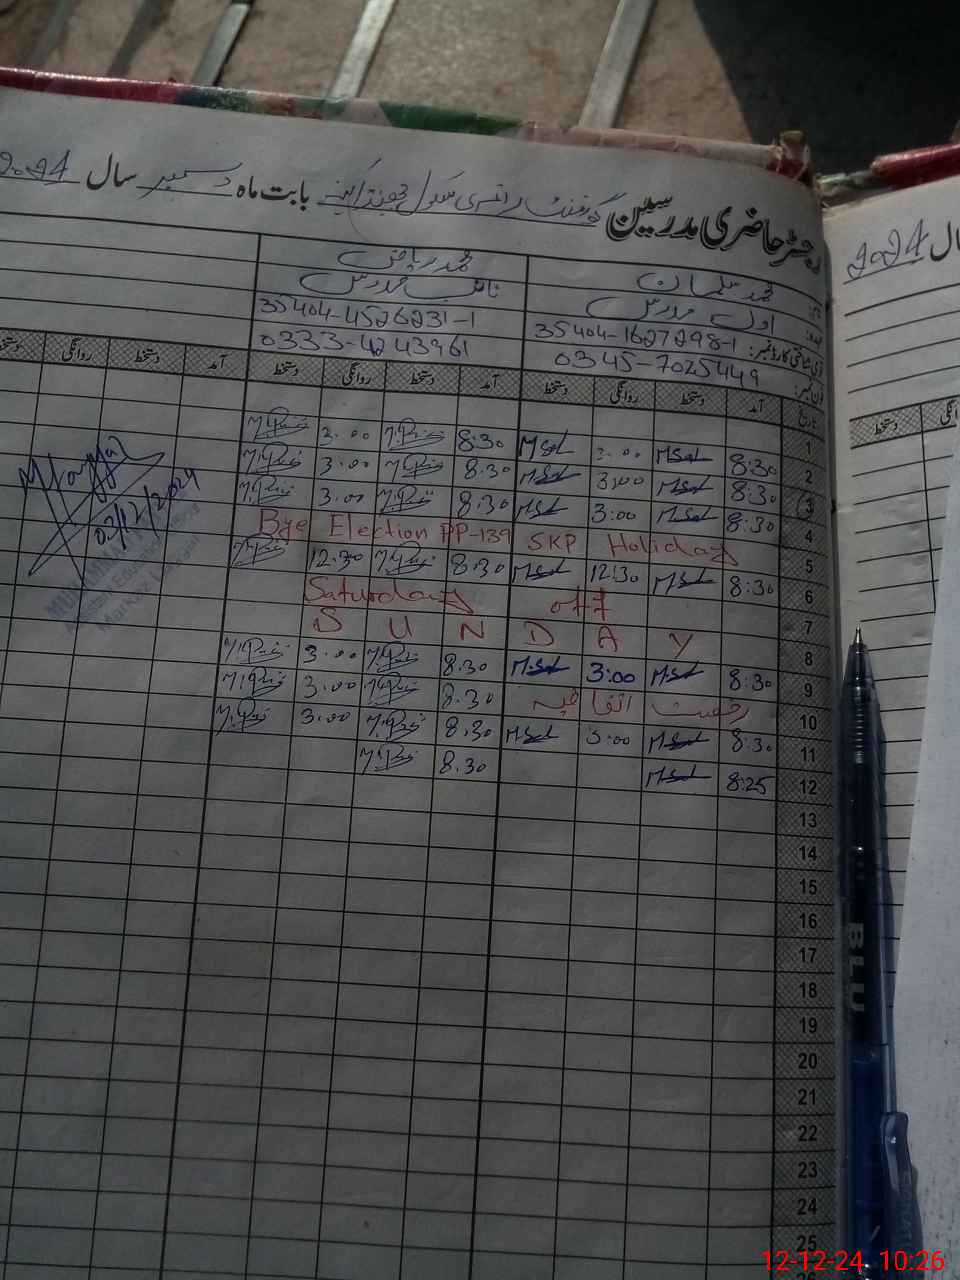 رجسٹر حاضری مدرسین گورنمنٹ پرائمری سکول بابت ماہ دسمبر سال 2024
نام: محمد سلمان محمد ریاض
عہدہ: اول مدرس نائب مدرس
آئی ڈی شناختی کارڈ نمبر: 35404-1627298-1 35404-4526231-1
فون نمبر: 0345-7025449 0333-4243961
تاریخ آمد دستخط روانگی دستخط آمد دستخط روانگی دستخط آمد دستخط روانگی دستخط
1 8:30 M.Sal 3:00 M.Sal 8.30 3.00
2 8:30 M.Sal 3:00 M.Sal 8.30 3.00
3 8:30 M.Sal 3:00 M.Sal 8.30 3.00
4 Bye Election PP-139 SKP Holiday
5 8:30 M.Sal 12:30 M.Sal 8.30 12.30
6 Saturday off
7 S U N D A Y
8 8:30 M.Sal 3:00 M.Sal 8.30 3.00
9 رخصت اتفاقیہ 8.30 3.00
10 8:30 M.Sal 3:00 M.Sal 8.30 3.00
11 8:25 M.Sal 8.30
12
13
14
15
16
17
18
19
20
21
22
23
24
25
02/12/2024
سال 2024
دستخط
BLU
12-12-24 10:26